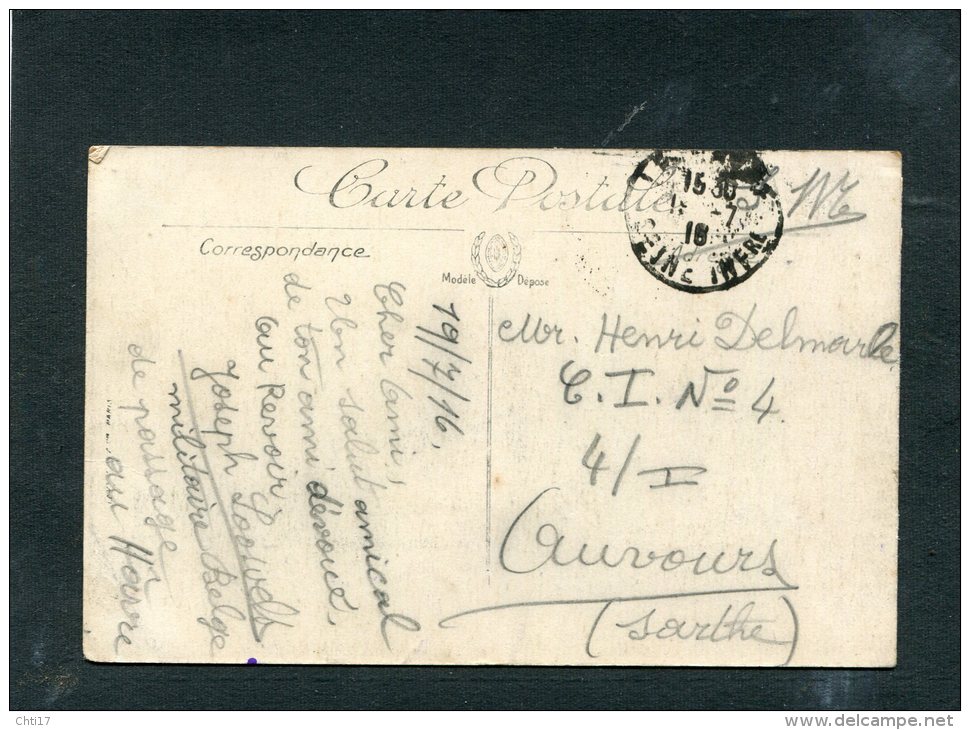 Carte Postale
Correspondance
Modèle Déposé
15 30
7
16
SEINE INFRE
19/7/16.
Cher Ami,
Un salut amical
de ton ami dévoué,
Au Revoir
Joseph
militaire Belge
de passage
au Hâvre
Mr. Henri Delmarle
C. I. No 4
4/I
Auvours
(Sarthe)
Chti17
www.delcampe.net